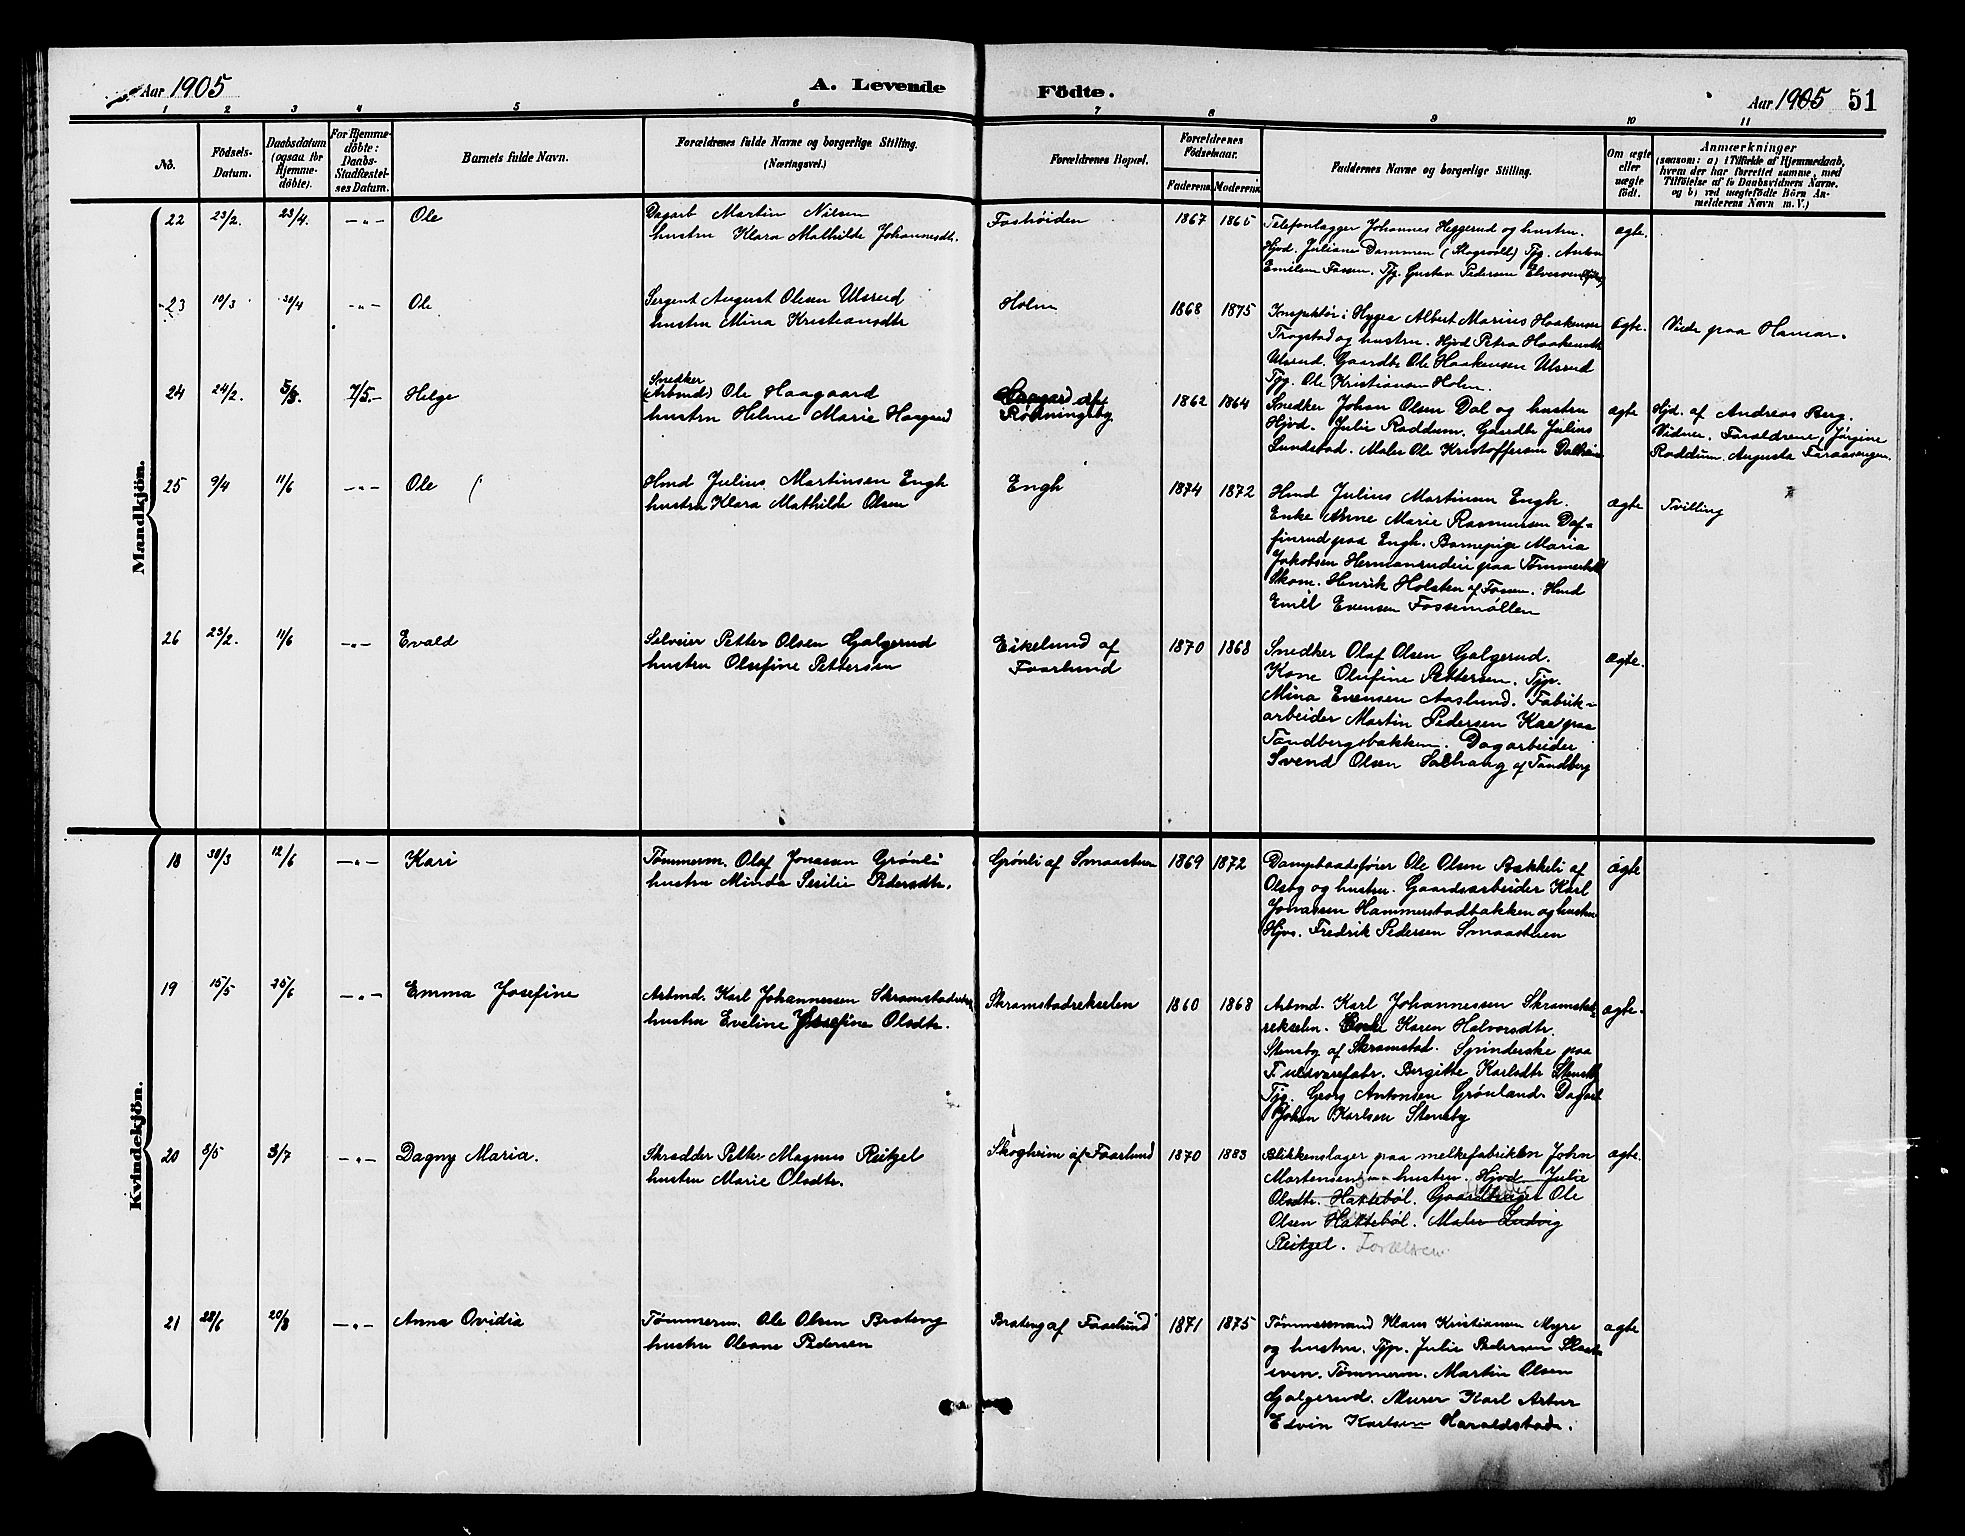 Aar 1905
A. Levende
Födte.
Aar 1905
51
1 2 3 4 5 6 7 8 9 10 11
No.
Födsels-Datum.
Daabsdatum (ogsaa for Hjemme-döbte).
For Hjemme-döbte: Daabs-Stadfæstel-ses Datum.
Barnets fulde Navn.
Forældrenes fulde Navne og borgerlige Stilling. (Næringsvei.)
Forældrenes Bopæl.
Forældrenes Födselsaar.
Faderens. Moderens.
Faddernes Navne og borgerlige Stilling.
Om ægte eller uægte födt.
Anmærkninger
(saasom: a) i Tilfælde af Hjemmedaab,
hvem der har forrettet samme, med
Tilföielse af to Daabsvidners Navne.
og b) ved uægtefödte Börn An-
melderens Navn m. V.)
Mandkjön.
22 23/2. 23/4. -"- Ole
Dagarb Martin Nilsen
hustru Klara Mathilde Johannesdtr.
Foshöiden
1867 1865
Telefonlægger Johannes Heggerud og hustru.
Hjvd. Juliane Dammen (Skogvold) Tjg. Anton
Emilsen Fossen. Tjg. Gustav Pedersen
ægte.
23 10/3 30/4 -"- Ole
Sergent August Olsen Ulsrud
hustru Mina Kristiansdtr
Holm
1868 1875
Inspektör i Hygea Albert Marius Haakensen
Trogstad og hustru. Hjvd Petra Haakensdtr
Ulsrud. Gaardbr. Ole Haakensen Ulsrud
Tjg. Ole Kristiansen Holm.
ægte.
Viede paa Hamar.
24 24/2. 5/3. 7/5.- Helge
Snedker
(Arbmd) Ole Haagaard
hustru Helene Marie Haagaard
Rödningsby
1862 1864
Snedker Johan Olsen Dal og hustru
Hjvd. Julie Raddum. Gaardbr Julius
Lundstad. Maler Ole Kristoffersen Dalheim
ægte
Hjd. af Andreas Berg.
Vidner. Forældrene, Jörgine
Raddum. Augusta Faraasengen.
25 9/4 11/6 -"- Ole
Hmd Julius Martinsen Engh
hustru Klara Mathilde Olsen
Engh
1874 1872
Hmd Julius Martinsen Engh.
Enke Anne Marie Rasmussen Daf-
finrud paa Engh. Barnepige Maria
Jakobsen Hermansrudeie paa Tömmerhol
Skom. Henrik Holsten af Fossen. Hmd
Emil Evensen Fossemöllen
ægte
Tvilling
26 23/2. 11/6 -"- Evald
Selveier Petter Olsen Galgerud
hustru Olufine Pettersen
Eikelund af
Faarlund
1870 1868
Snedker Olaf Olsen Galgerud.
Kone Olufine Pettersen. Tjp.
Mina Evensen Aaslund. Fabrik-
arbeider Martin Pedersen Kaa paa
Tandbergsbakken. Dagarbeider
Svend Olsen Solhaug af Tandberg
ægte.
Kvindekjön.
18 30/3 12/6 -"- Kari
Tömmerm. Olaf Jonassen Grönli
hustru Minda Sesilie Pedersdtr.
Grönli af Smaastuen
1869 1872
Dampbaadsförer Ole Olsen Bakkeli af
Olsby og hustru. Gaardsarbeider Karl
Jonassen Hammerstadbakken og hustru
Hjvs. Fredrik Pedersen Smaastuen
ægte
19 15/5 25/6 -"- Emma Josefine
Arbmd. Karl Johannessen
hustru Eveline Josefine Olsdtr.
Skramstadrekselen
1860 1868
Arbmd. Karl Johannessen Skramstad-
rekselen. Enke Karen Halvorsdtr.
Stensby af Skramstad. Spinderske paa
F. uldvarefabr. Bergitte Karlsdtr Stensby
Tjg. Georg Antonsen Grönland. Dagarb
Johan Karlsen Stensby
ægte.
20 8/5 3/7 -"- Dagny Maria.
Skrædder Petter Magnus Reitzel
hustru Marie Olsdtr.
Skogheim af Faarlund
1870 1883
Blikkenslager paa melkefabrikken John
Mortensen og hustru. Hjvd Julie
Olsdtr. Hattebøl. Gaardbruger Ole
Olsen Hattebøl. Maler Ludvig
Reitzel. Forældren.
ægte.
21 28/6 20/8 -"- Anna Ovidia
Tömmerm. Ole Olsen Brateng
hustru Oleane Pedersen
Brateng af Faarlund
1871 1875
Tömmermand Klaus Kristiansen Myre
og hustru. Tjp. Julie Pedersen
even. Tömmerm. Martin Olsen
Galgerud. Murer Karl Artur
Edvin Karlsen Haraldstad.
ægte